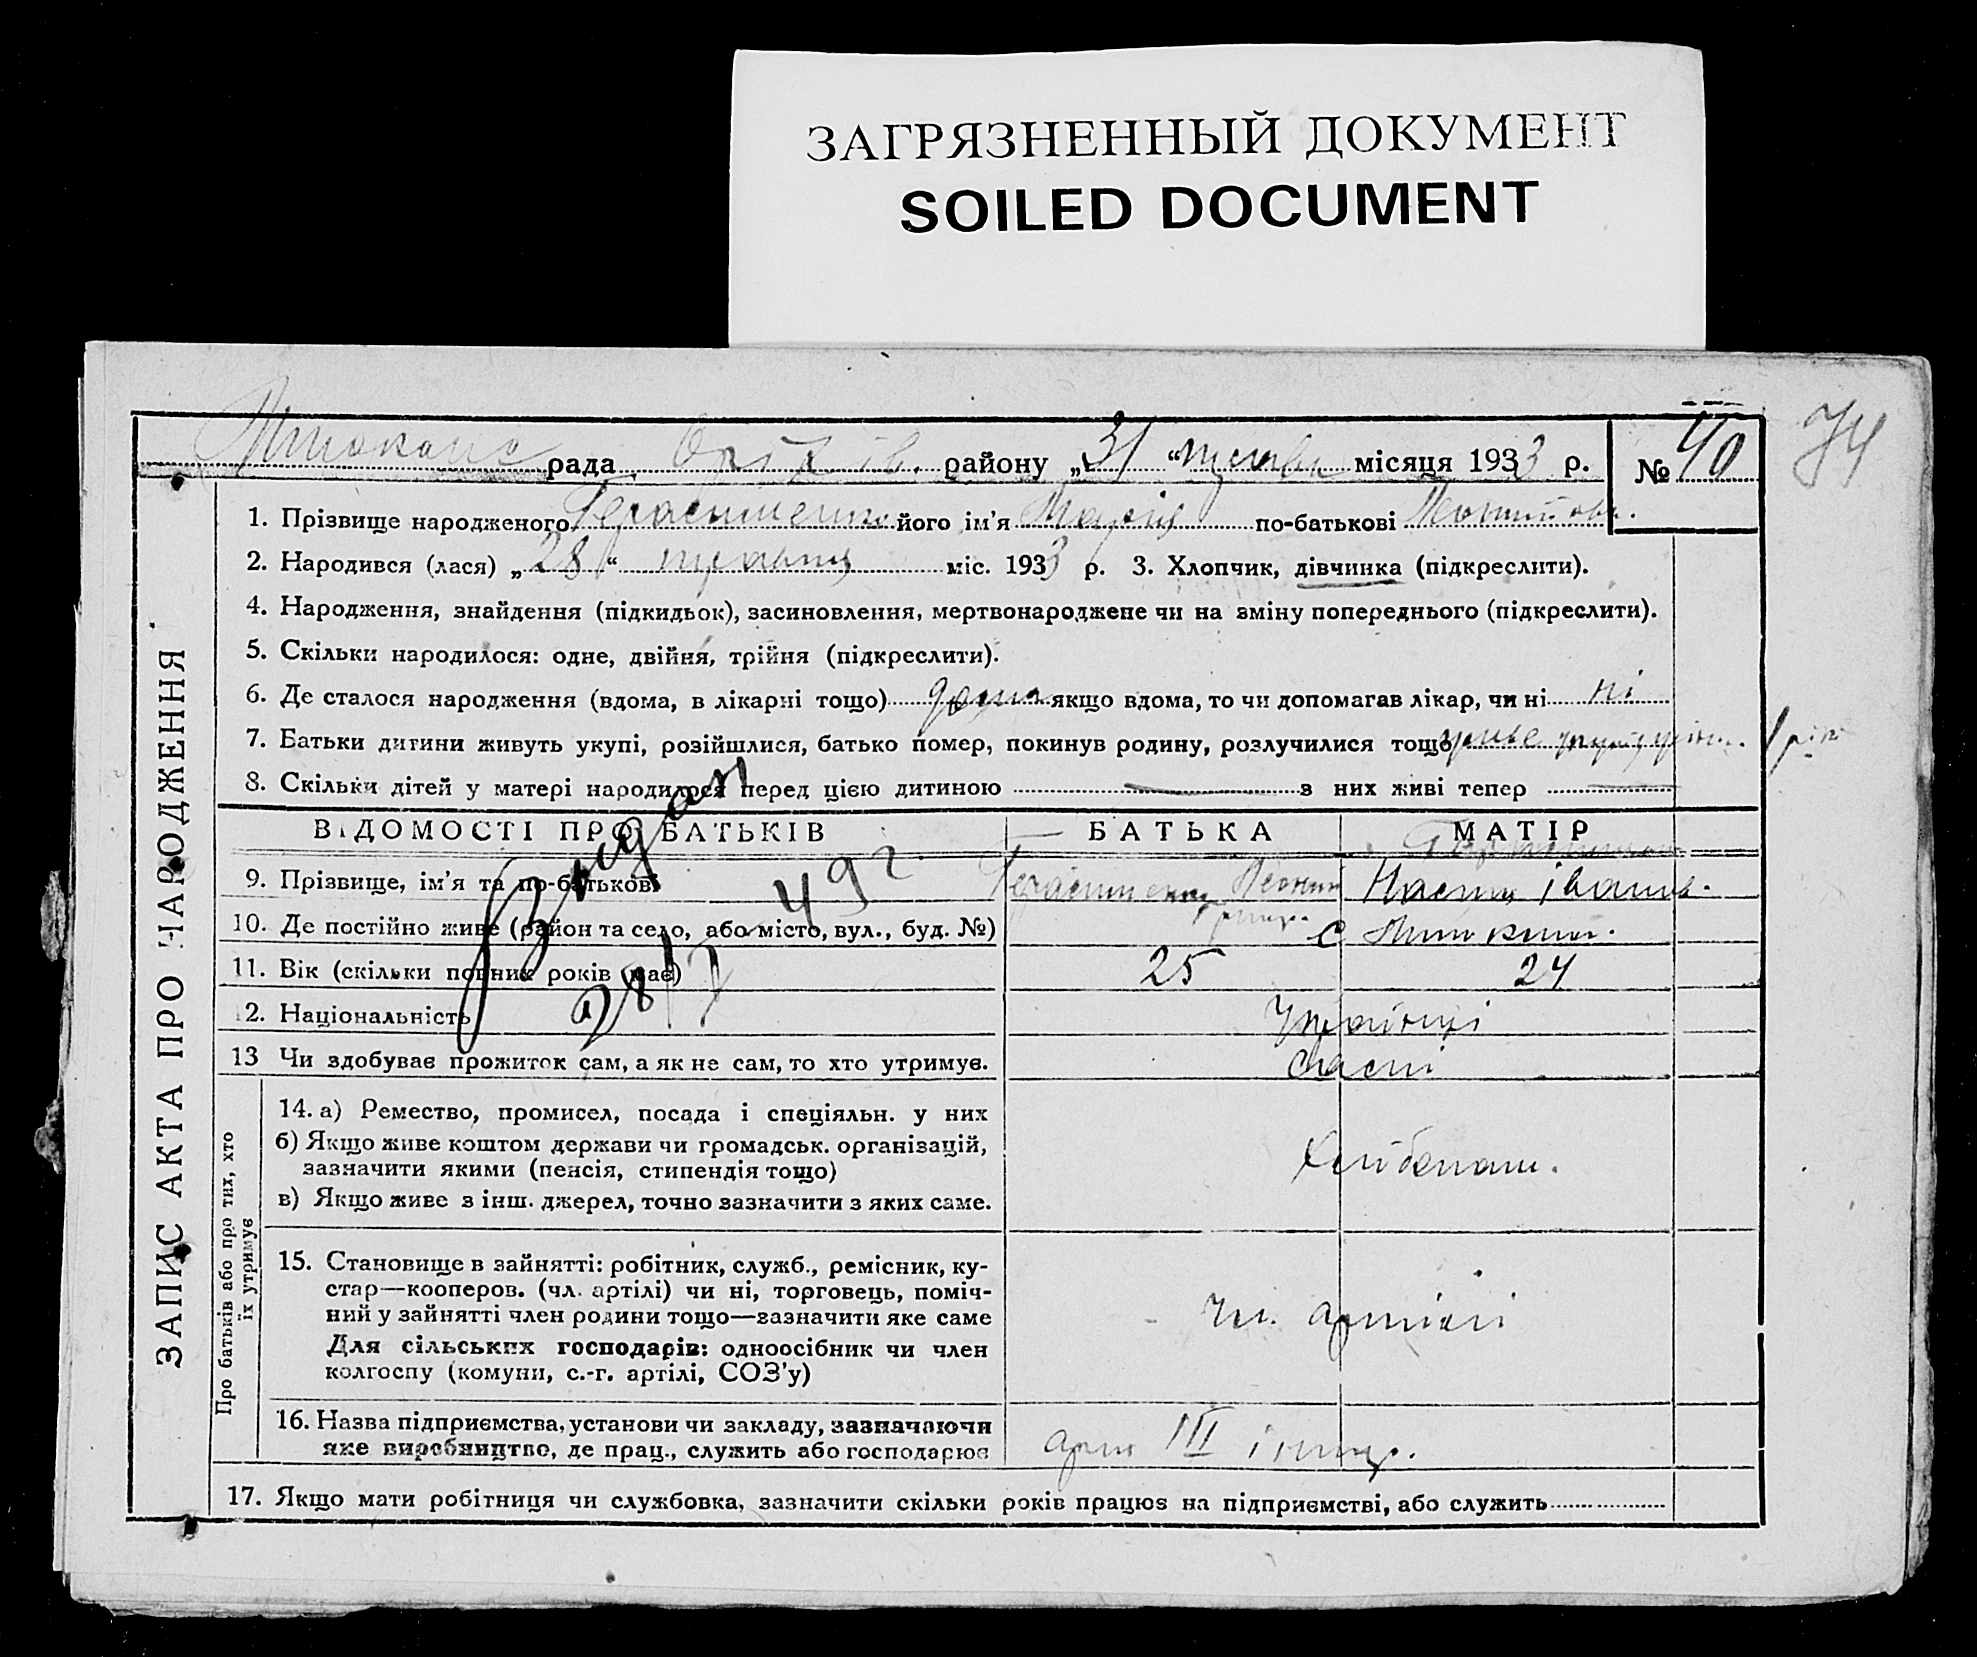 ЗАГРЯЗНЕННЫЙ ДОКУМЕНТ
SOILED DOCUMENT
74
рада Оріхів. району „31“ травня місяця 1933 р. № 40
1. Прізвище народженого Герасименко його ім'я Марія по-батькові
2. Народився (лася) „28“ травня міс. 1933 р. 3. Хлопчик, дівчинка (підкреслити).
4. Народження, знайдення (підкидьок), засиновлення, мертвонароджене чи на зміну попереднього (підкреслити).
5. Скільки народилося: одне, двійня, трійня (підкреслити).
6. Де сталося народження (вдома, в лікарні тощо) дома якщо вдома, то чи допомагав лікар, чи ні ні
7. Батьки дитини живуть укупі, розійшлися, батько помер, покинув родину, розлучилися тощо 1 рік
8. Скільки дітей у матері народилося перед цією дитиною — з них живі тепер —
ВІДОМОСТІ ПРО БАТЬКІВ БАТЬКА МАТІР
9. Прізвище, ім'я та по-батькові Герасименко Настя Іванів.
10. Де постійно живе (район та село, або місто, вул., буд. №) с
11. Вік (скільки повних років має) 25 24
12. Національність Українці
13 Чи здобуває прожиток сам, а як не сам, то хто утримує. Самі
14. а) Ремество, промисел, посада і спеціяльн. у них
б) Якщо живе коштом держави чи громадськ. організацій,
зазначити якими (пенсія, стипендія тощо) Хлібопаш.
в) Якщо живе з інш. джерел, точно зазначити з яких саме.
15. Становище в зайнятті: робітник, служб., ремісник, ку-
стар—кооперов. (чл. артілі) чи ні, торговець, поміч-
ний у зайнятті член родини тощо—зазначити яке саме чл. артілі
Для сільських господарів: одноосібник чи член
колгоспу (комуни, с.-г. артілі, СОЗ'у)
16. Назва підприємства, установи чи закладу, зазначаючи
яке виробництво, де прац., служить або господарює арт III інтер.
17. Якщо мати робітниця чи службовка, зазначити скільки років працює на підприємстві, або служить
ЗАПИС АКТА ПРО НАРОДЖЕННЯ
Про батьків або про тих, хто
їх утримує
Видан
28/V 49 г